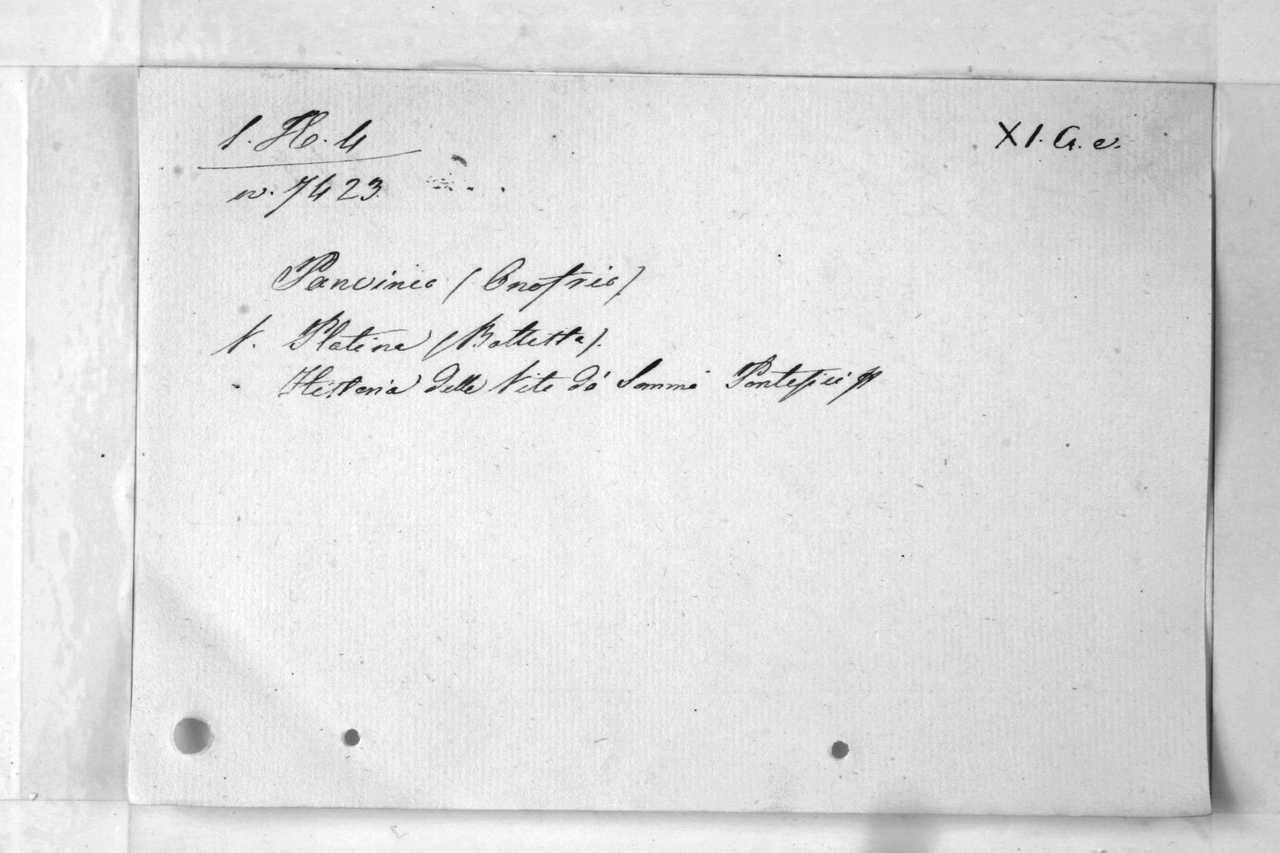 I. H. 4
XI. G. e.
n. 7423.
Panvinio (Onofrio)
V. Platina (Battista).
Historia delle Vite dei Sommi Pontefici